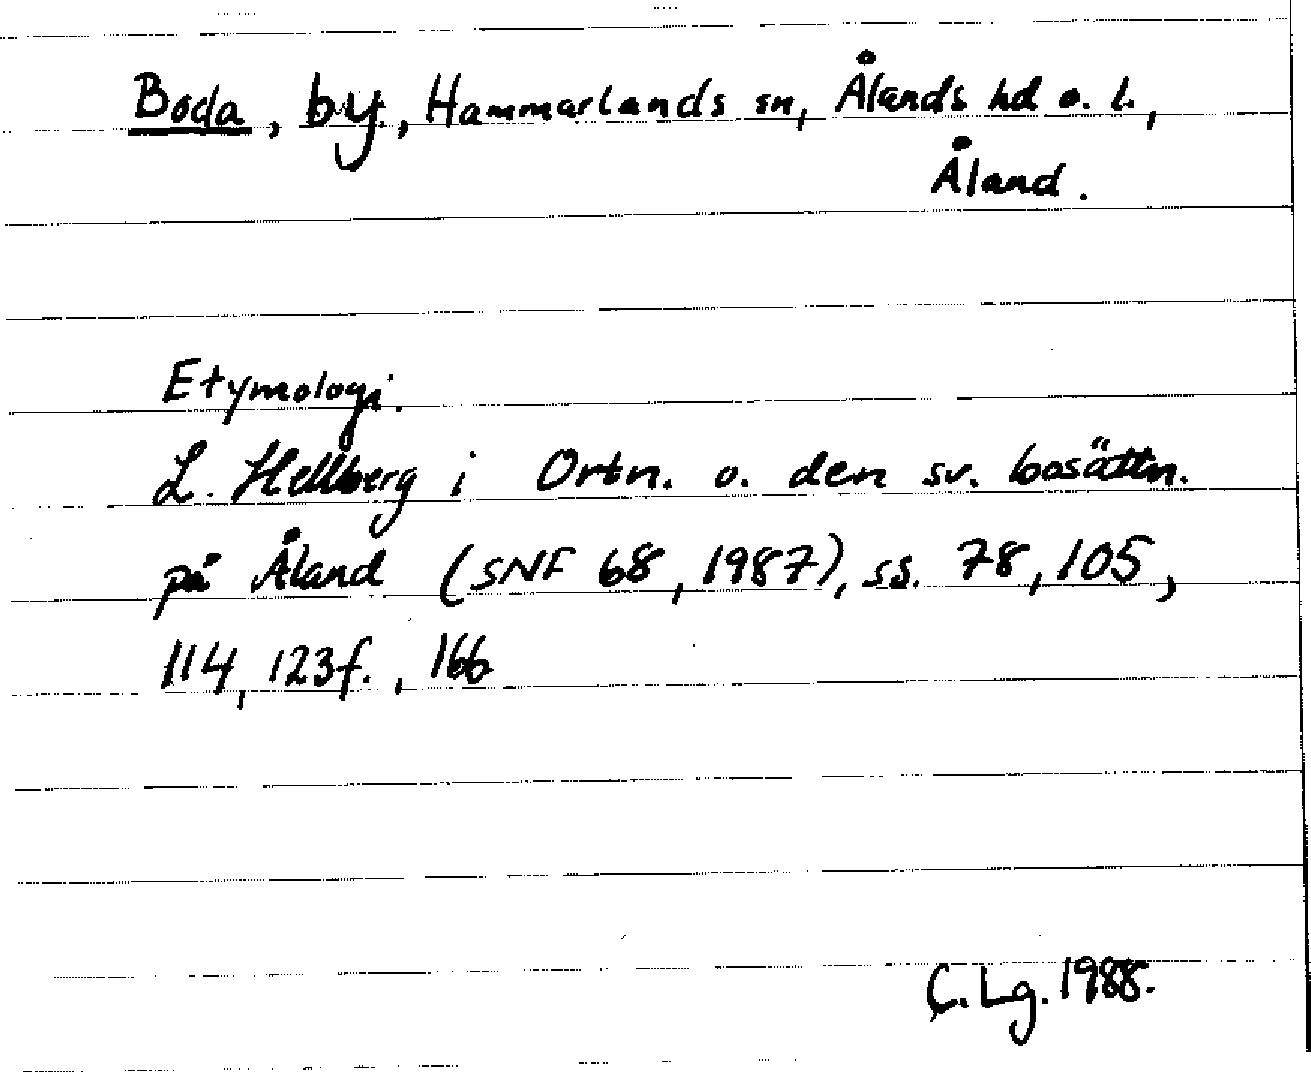 Boda, by, Hammarlands sn, Ålands hd o. l.,
Åland.
Etymologi.
L. Hellberg i Ortn. o. den sv. bosättn.
på Åland (SNF 68, 1987), ss. 78, 105,
114, 123f., 166
C.Lg. 1988.